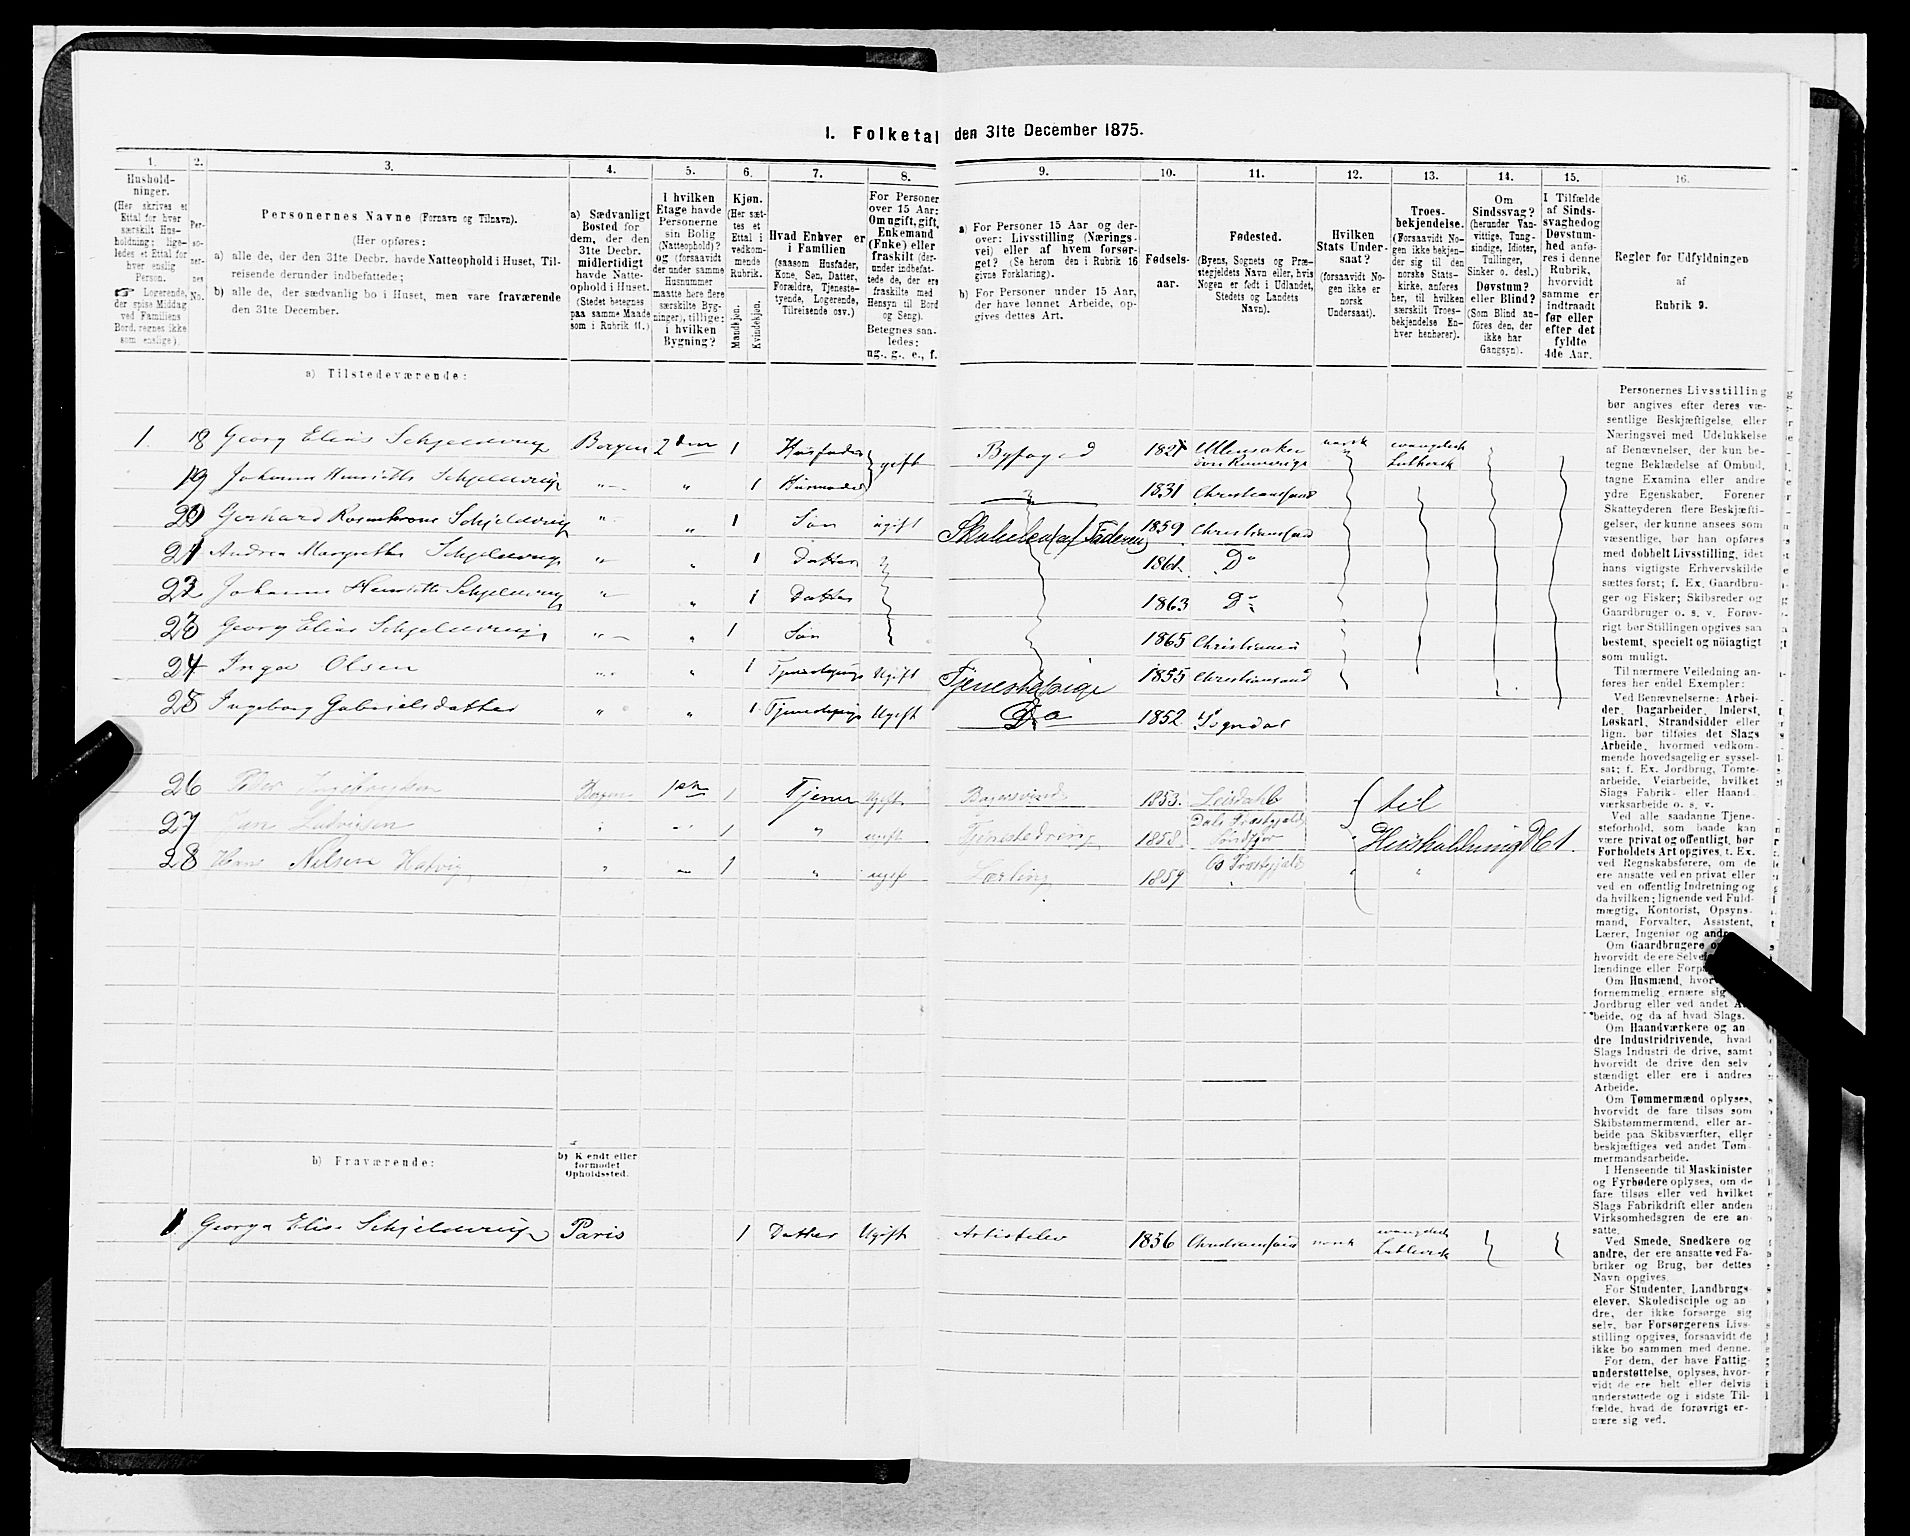 I. Folketal den 31te December 1875.
1. 2. 3. 4. 5. 6. 7. 8. 9. 10. 11. 12. 13. 14. 15. 16.
Hushold-
ninger.
(Her skrives et
Ettal for hver
særskilt Hus-
holdning; lige-
ledes et Ettal for
hver enslig
Person.
☞ Logerende,
der spise Middag
ved Familiens
Bord, regnes ikke
som enslige).
Per-
so-
ner-
nes
No.
Personernes Navne (Fornavn og Tilnavn).
(Her opføres:
a) alle de, der den 31te Decbr. havde Natteophold i Huset, Til-
reisende derunder indbefattede;
b) alle de, der sædvanlig bo i Huset, men vare fraværende
den 31te December.
a) Sædvanligt
Bosted for
dem, der den
31te Decbr.
midlertidigt
havde Natte-
ophold i Huset.
(Stedet betegnes
paa samme Maade
som i Rubrik 11.)
I hvilken
Etage havde
Personerne
sin Bolig
(Natteophold)?
og (forsaavidt
der under samme
Husnummer
maatte høre flere
særskilte Byg-
ninger), tillige:
i hvilken
Bygning?
Kjøn.
(Her sæt-
tes et
Ettal i
vedkom-
mende
Rubrik.
Mandkjøn.
Kvindekjøn.
Hvad Enhver er
i Familien
(saasom Husfader,
Kone, Søn, Datter,
Forældre, Tjeneste-
tyende, Logerende,
Tilreisende osv.)
For Personer
over 15 Aar:
Om ugift, gift,
Enkemand
(Enke) eller
fraskilt (der-
under indbefat-
tede de, der ere
fraskilte med
Hensyn til Bord
og Seng).
Betegnes saa-
ledes:
ug., g., e., f.
a) For Personer 15 Aar og der-
over: Livsstilling (Nærings-
vei) eller af hvem forsør-
get? (Se herom den i Rubrik 16
givne Forklaring).
b) For Personer under 15 Aar,
der have lønnet Arbeide, op-
gives dettes Art.
Fødsels-
aar.
Fødested.
(Byens, Sognets og Præ-
stegjeldets Navn eller, hvis
Nogen er født i Udlandet,
Stedets og Landets
Navn).
Hvilken
Stats Under-
saat?
(forsaavidt No-
gen ikke er
norsk
Undersaat).
Troes-
bekjendelse.
(Forsaavidt No-
gen ikke bekjen-
der sig til den
norske Stats-
kirke, anføres
her, til hvilken
særskilt Troes-
bekjendelse En-
hver henhører).
Om
Sindssvag?
(herunder Van-
vittige, Tung-
sindige, Idioter,
Tullinger,
Sinker o. desl.)
Døvstum?
eller Blind?
(Som Blind an-
føres den, der
ikke har
Gangsyn).
I Tilfælde
af Sinds-
svaghed og
Døvstum-
hed anfø-
res i denne
Rubrik,
hvorvidt
samme er
indtraadt
før eller
efter det
fyldte
4de Aar.
Regler for Udfyldningen
af
Rubrik 9.
a) Tilstedeværende:
1. 18 Georg Elias Schjelderup Bergen 2den 1 Husfader gift Byfoged 1821 Ullensaker norsk evangelisk Luthersk
19 Johanne Henriette Schjelderup " " 1 Husmoder 1831 Christianssand
20 Gerhard Rosenkrone Schjelderup " " 1 Søn ugift 1859 Christianssand
21 Andrea Margrethe Schjelderup " " 1 Datter 1861 Do
22 Johanne Henriette Schjelderup " " 1 Datter 1863 Do
23 Georg Elias Schjelderup " " 1 Søn 1865 Christianssand
24 Inga Olsen " " 1 Tjenestepige Ugift Tjenestepige 1855 Christianssand
25 Ingeborg Gabrielsdatter " " 1 Tjenestepige Ugift Do 1852 Sogndal
26 Bergen 1ste 1 Tjener Ugift 1853 til
27 Ludvigsen " " 1 " ugift Tjenestedreng 1858 Husholdning No 1.
28 Hans Nilsen Hatvig " " 1 " ugift Lærling 1859 Os Præstegjeld
b) Fraværende:
b) Kjendt eller
formodet
Opholdssted.
1 Georga Elise Schjelderup Paris 1 Datter Ugift Artistelev 1856 Christianssand norsk evangelisk Luthersk
Personernes Livsstilling
bør angives efter deres væ-
sentlige Beskjæftigelse, eller
Næringsvei med Udelukkelse
af Benævnelser, der kun be-
tegne Beklædelse af Ombud,
tagne Examina eller andre
ydre Egenskaber. Forener
Skatteyderen flere Beskjæfti-
gelser, der kunne ansees som
væsentlige, bør han opføres
med dobbelt Livsstilling, idet
hans vigtigste Erhvervskilde
sættes først; f. Ex. Gaardbru-
ger og Fisker; Skibsreder og
Gaardbruger o. s. v. Forøv-
rigt bør Stillingen opgives saa
bestemt, specielt og nöiagtigt
som muligt.
Til nærmere Veiledning an-
føres her endel Exempler:
Ved Benævnelserne: Arbei-
der, Dagarbeider, Inderst,
Løskarl, Strandsidder eller
lign. bør tilføies det Slags
Arbeide, hvormed vedkom-
mende hovedsagelig er syssel-
sat; f. Ex. Jordbrug, Tomte-
arbeide, Veiarbeide, hvilket
Slags Fabrik- eller Haand
værksarbeide o. s. v.
Ved alle saadanne Tjene-
steforhold, som baade kan
være privat og offentligt, bør
Forholdets Art opgives, t. Ex.
ved Regnskabsførere, om de
ere ansatte ved en privat eller
ved en offentlig Indretning og
da hvilken; lignende ved Fuld-
mægtig, Kontorist, Opsyns-
mand, Forvalter, Assistent,
Lærer, Ingeniør og andre
Om Gaardbrugere
hvorvidt de ere
lændinge eller
Om Husmænd,
fornemmelig ernære sig
Jordbrug eller ved andet
beide, og da af hvad Slags.
Om Haandværkere og an
dre Industridrivende, hvad
Slags Industri de drive, samt
hvorvidt de drive den selv
stændigt eller ere i andres
Arbeide.
Om Tømmermænd oplyses,
hvorvidt de fare tilsøs som
Skibstømmermænd, eller ar-
beide paa Skibsværfter, eller
beskjæftiges ved andet Tøm-
mermandsarbeide.
I Henseende til Maskinister
og Fyrbødere oplyses, om de
fare tilsøs eller ved hvilket
Slags Fabrikdrift eller anden
Virksomhedsgren de ere an-
satte.
Ved Smede, Snedkere og
andre, der ere ansatte ved Fa-
briker og Brug, bør dettes
Navn opgives.
For Studenter, Landbrugs-
elever, Skoledisciple og an
dre, der ikke forsørge sig
selv, bør Forsørgerens Livs-
stilling opgives, forsaavidt de
ikke bo sammen med denne.
For dem, der have Fattig-
understøttelse, oplyses, hvor-
vidt de ere helt eller delvis
understøttede og i sidste Til-
fælde, hvad de forøvrigt er-
nære sig ved.